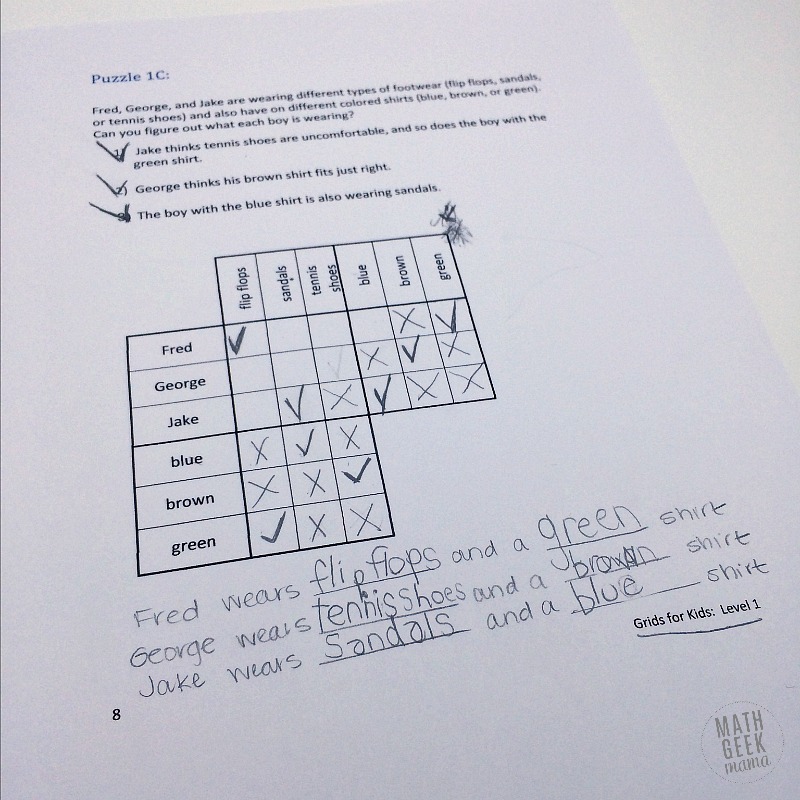 Puzzle 1C:
Fred, George, and Jake are wearing different types of footwear (flip flops, sandals,
or tennis shoes) and also have on different colored shirts (blue, brown, or green).
Can you figure out what each boy is wearing?
1) Jake thinks tennis shoes are uncomfortable, and so does the boy with the
green shirt.
2) George thinks his brown shirt fits just right.
3) The boy with the blue shirt is also wearing sandals.
flip flops
sandals
tennis
shoes
blue
brown
green
Fred
George
Jake
blue
brown
green
Fred wears flip flops and a green shirt
George wears tennis shoes and a brown shirt
Jake wears Sandals and a blue shirt
Grids for Kids: Level 1
8
MATH
GEEK
mama